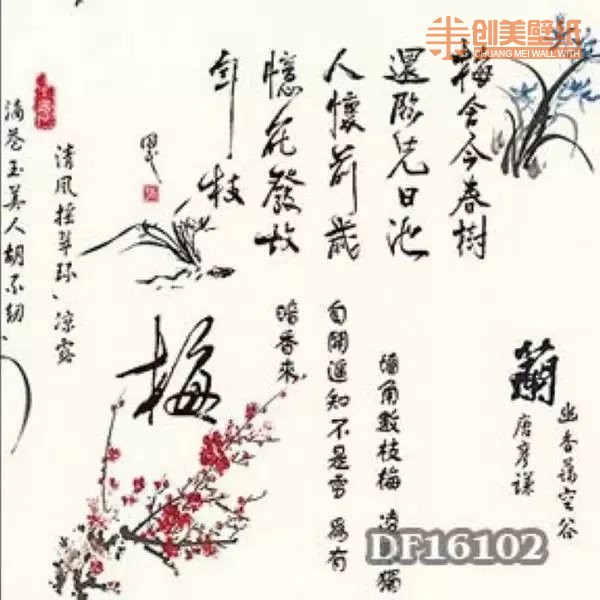 创美壁纸
CHUANG MEI WALL WITH
梅含今春樹
還臨先日池
人懷前歲
憶花發故
年枝
清風搖翠環、凉露
滴蒼玉美人胡不紉
蘭
唐彥謙
幽香藹空谷
牆角數枝梅 凌 獨
自開遥知不是雪 為有
暗香來
梅
DF16102